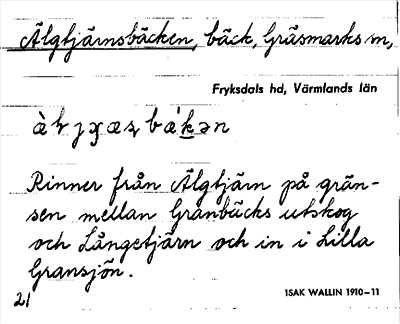 Älgtjärnsbäcken, bäck, Gräsmarks sn,
Fryksdals hd, Värmlands län
Rinner från Älgtjärn på grän-
sen mellan Granbäcks utskog
och Långetjärn och in i Lilla
Gransjön.
21
ISAK WALLIN 1910-11